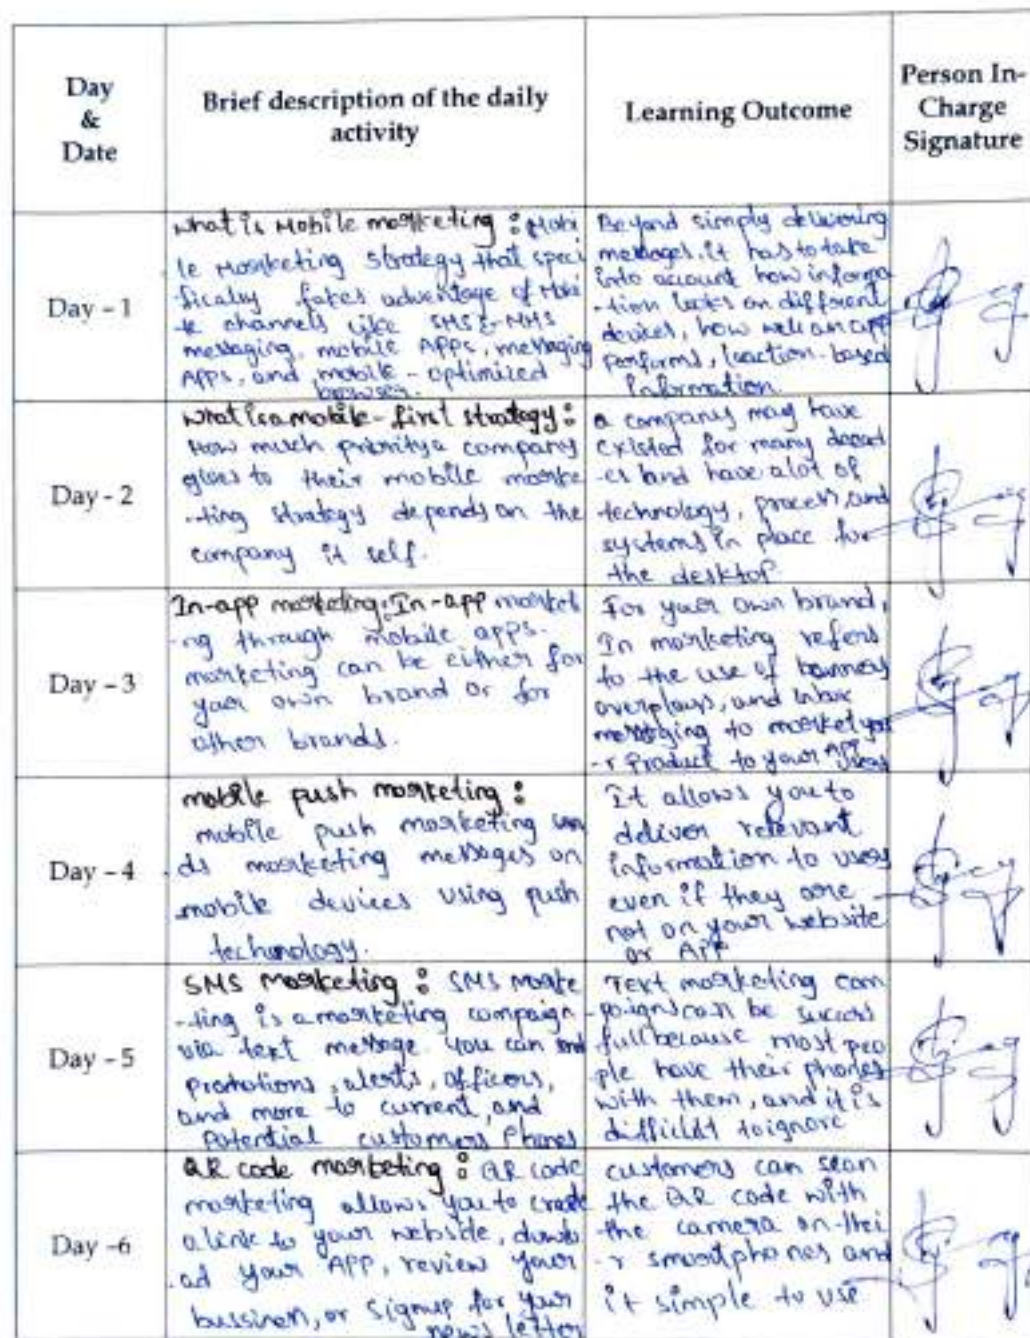 Day
&
Date
Brief description of the daily
activity
Learning Outcome
Person In-
Charge
Signature
Day - 1
what is Mobile marketing : Mobi
le Marketing strategy that speci
fically takes advantage of Mobi
le channels like SMS & MMS
messaging, mobile APPs, messaging
APPs, and mobile - optimized
browser.
Beyond simply delivering
messages, it has to take
into account how informa
-tion looks on different
devices, how well an app
performs, loaction-based
Information.
Day - 2
what is a mobile - first strategy :
How much priority a company
gives to their mobile marke
-ting strategy depends on the
company it self.
a company may have
existed for many decad
-es and have a lot of
technology, process, and
systems in place for
the desktop
Day - 3
In-app marketing: In-app market
-ng through mobile apps.
marketing can be either for
your own brand or for
other brands.
For your own brand,
In marketing refers
to the use of banners
overplays, and inbox
messaging to market you
-r product to your APP users
Day - 4
mobile push marketing :
mobile push marketing sen
ds marketing messages on
mobile devices using push
technology.
It allows you to
deliver relevant
information to users
even if they are
not on your website
or APP
Day - 5
SMS marketing : SMS marke
-ting is a marketing campaign
via text message. you can send
promotions, alerts, officers,
and more to current, and
potential customers Phones
Text marketing cam
-paigns can be success
full because most peo
ple have their phones
with them, and it is
difficult to ignore
Day -6
QR code marketing : QR code
marketing allows you to create
a link to your website, downlo
ad your APP, review your
bussiness, or signup for your
news letter
customers can scan
the QR code with
the camera on thei
-r smartphones and
it simple to use